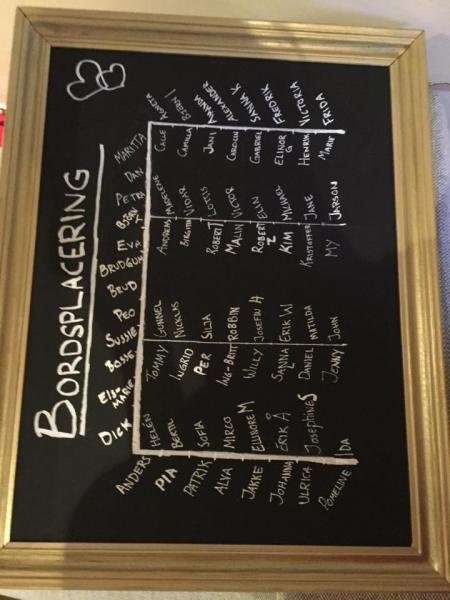 BORDSPLACERING
DICK ELSE MARIE BOSSE SUSSIE PEO BRUD BRUDGUM EVA PETRA DAN MARITTA
ANDERS HELÉN TOMMY GUNNEL ANDREAS MADELEINE CALLE AGNETA
PIA BERTIL INGRID NICKLAS BIRGITTA VIDAR CAMILLA
PATRIK SOFIA PER SILJA ROBERT T JANI AMANDA
ALVA MIRCO ING-BRITT ROBBIN MALIN VICTOR CAROLIN ALEXANDER
JAKKE ELLINORE M WILLY JOSEFIN H ROBERT Z ELIN GABRIEL SANNA K
JOHANNA ERIK Å SANNA ERIK W KIM MICHAEL ELINOR G FREDRIK
ULRICA JOSEPHINE S DANIEL MATILDA KRISTOFFER JANE HENRIK VICTORIA
POMELINE IDA JENNY JOHN MY JARSON MARIE FRIDA